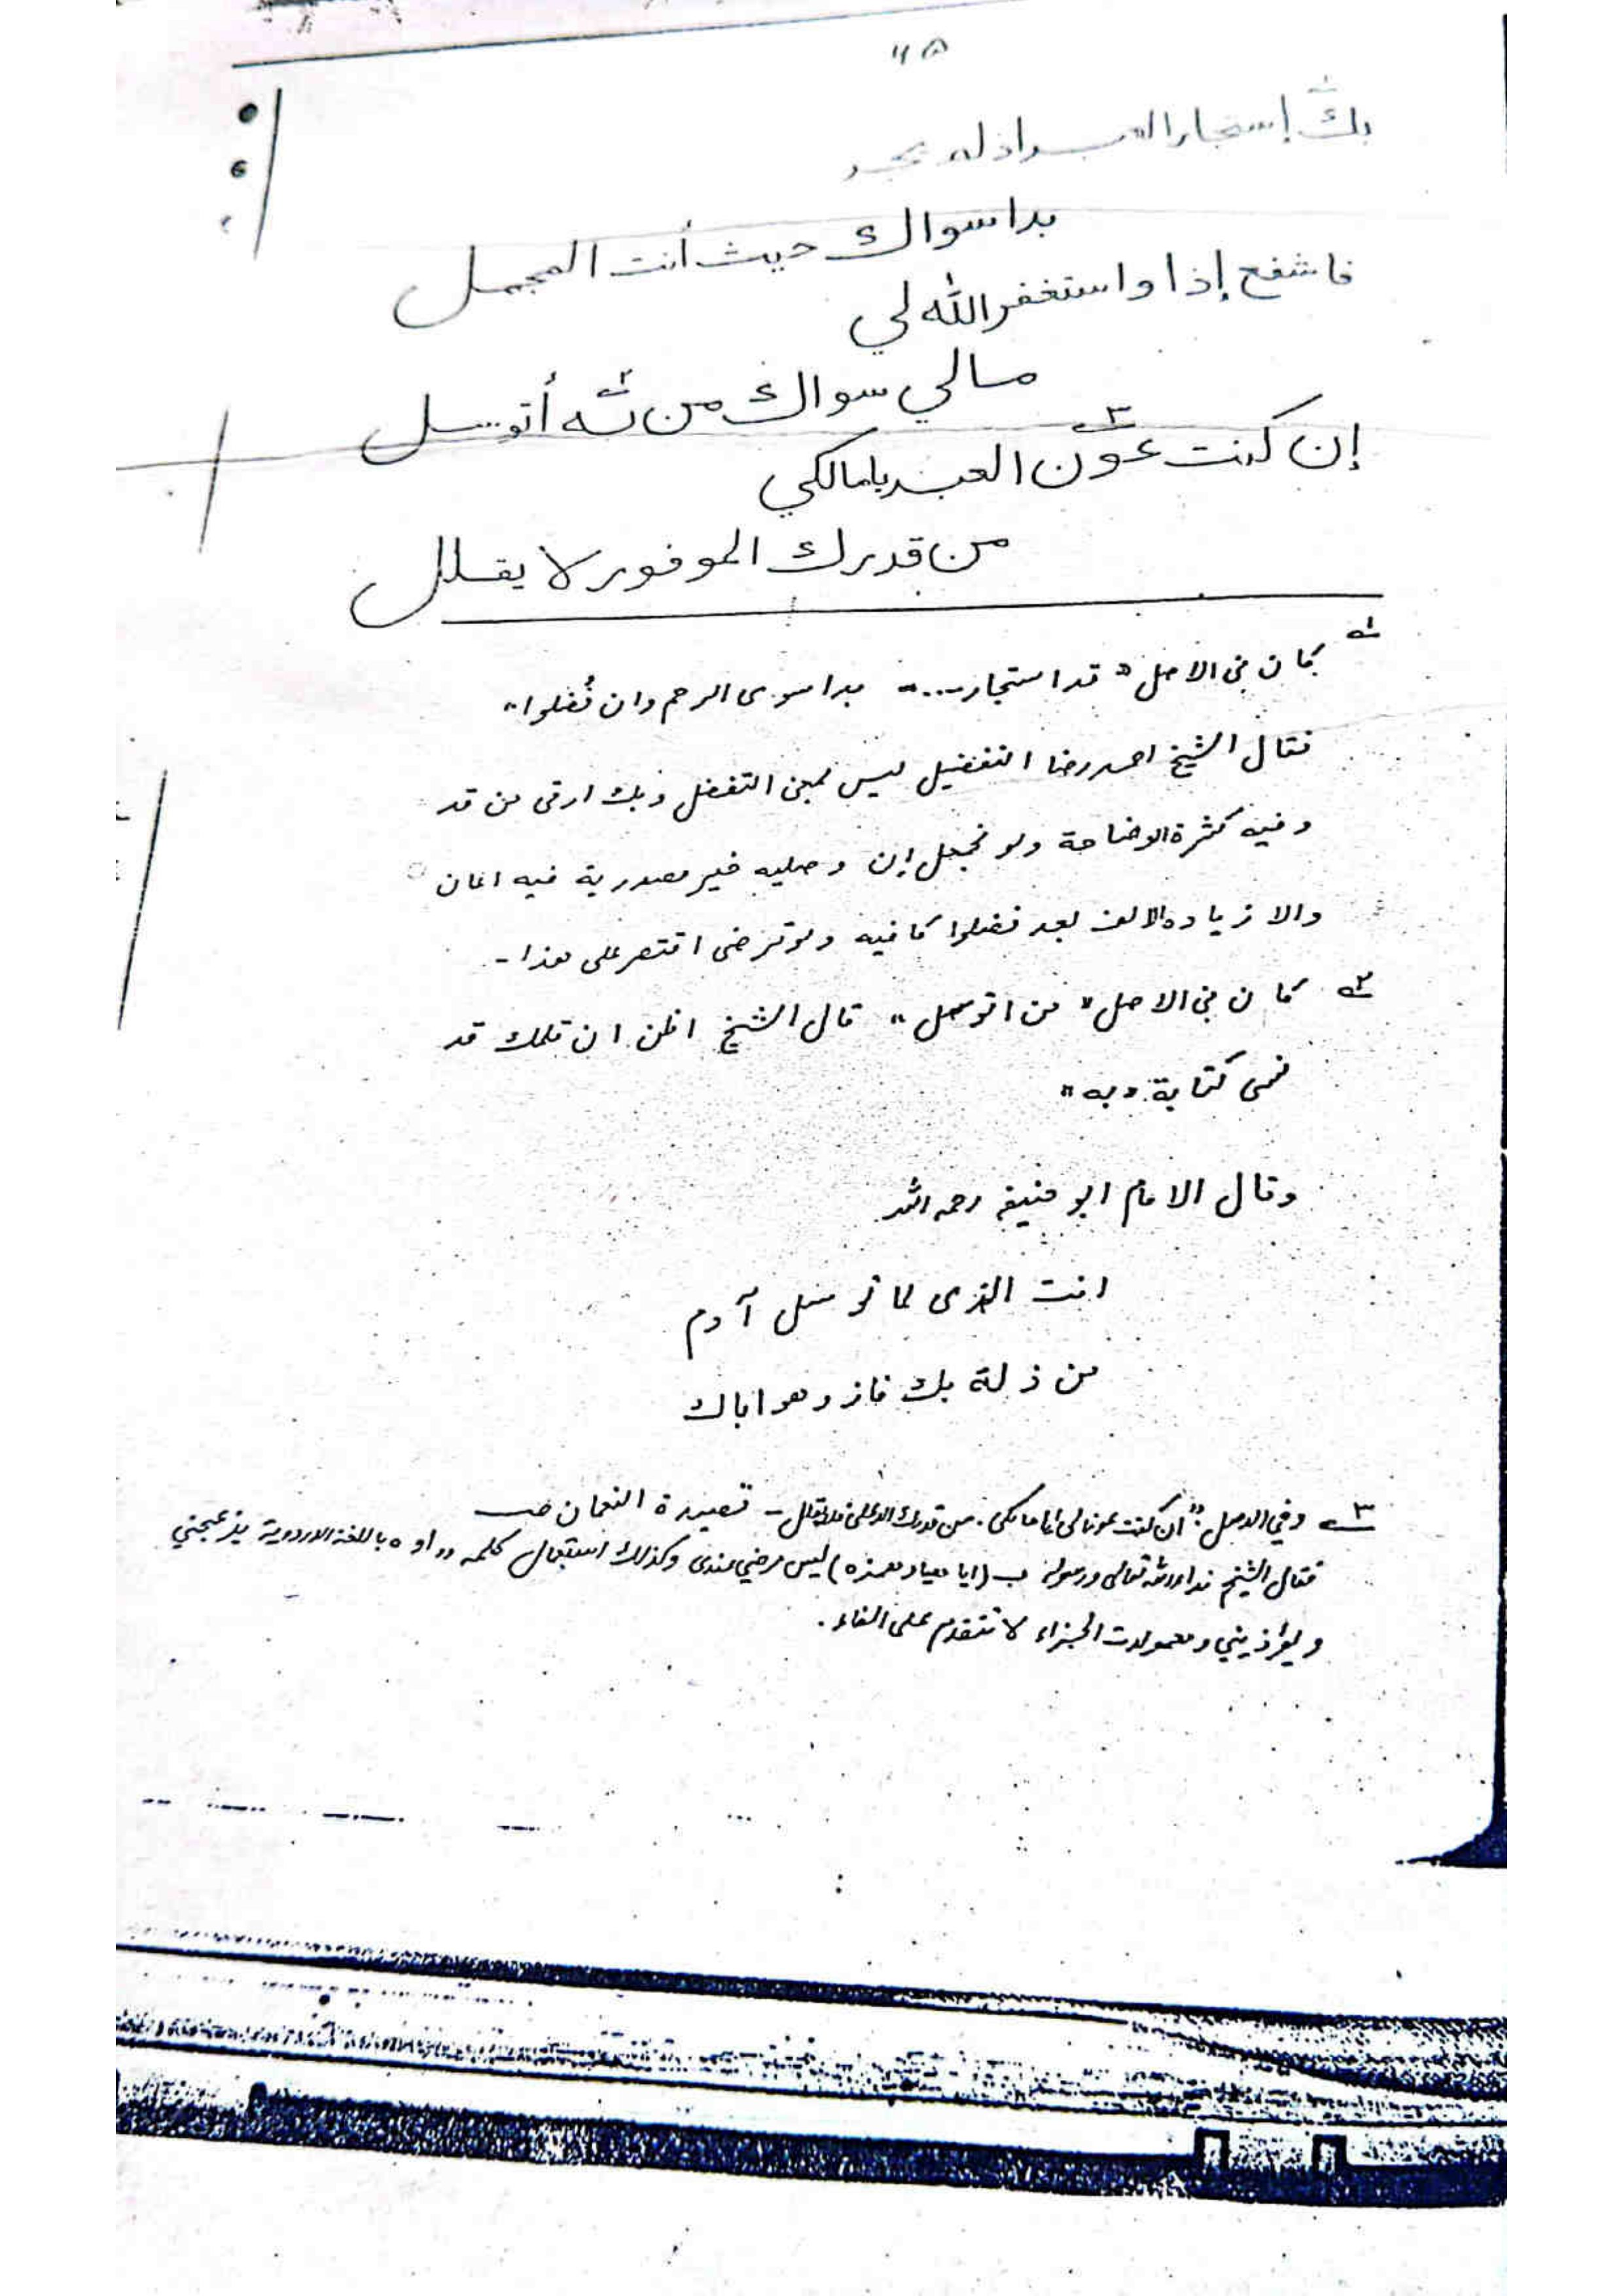 ٦٥
بك إستجار العبد إذ لم يجد
بدا سواك حيث أنت المجمل
فاشفع إذا واستغفر الله لي
مالي سواك من به أتوسل
إن كنت عون العبد يا مالكي
من قدرك الموفور لا يقلل
١ كان في الاصل " قد استجار .... بدا سوى الرحم وان فُضلوا "
فقال الشيخ احمد رضا التفضيل ليس بمعنى التفضل وبك ارقى من قد
وفيه كثرة الوضاحة ولو نجعل إن وصليه غير مصدرية فيه
والا زيادة الالف بعد فضلوا كافيه ولو ترضى اقتصر على هذا -
٢ كان في الاصل " من اتوسل " قال الشيخ اظن ان قلمك قد
نسى كتابة " به "
وقال الامام ابو حنيفه رحمه الله
انت الذى لما توسل آدم
من زلة بك فاز وهو اباك
٣ وفي الاصل : " ان كنت عونا لى ايا مالكى . من قدرك الاعلى فلا يقلل - قصيدة النعمان صـ
فقال الشيخ نداء الله تعالى ورسوله ب (ايا هيا وهمزه) ليس مرضي عندى وكذلك استعمال كلمه " او ه باللغة الاردوية يزعجني
ويؤذيني ومعمولات الجزاء لا تتقدم على الفاء .